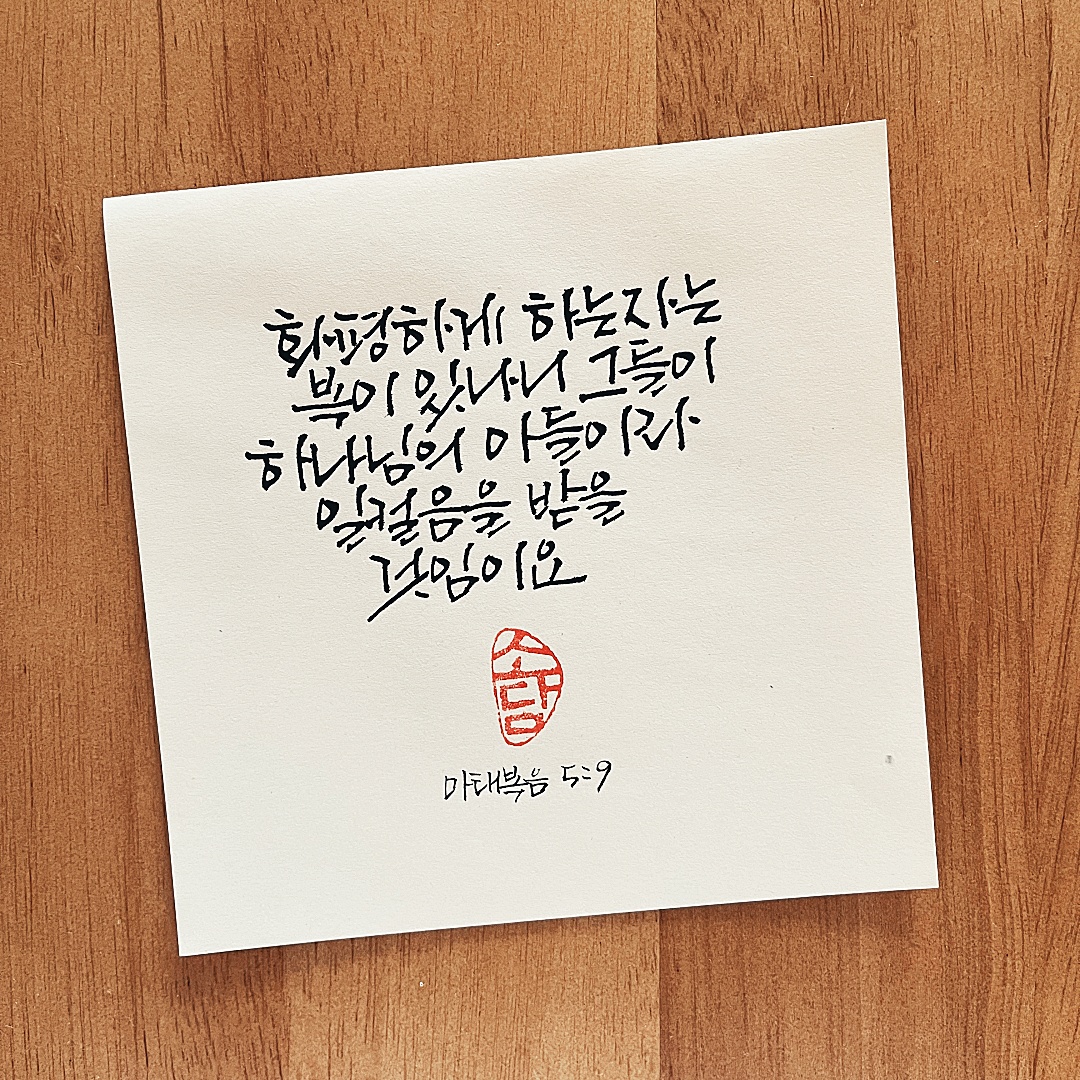 화평하게 하는자는
복이 있나니 그들이
하나님의 아들이라
일컬음을 받을
것임이요
소담
마태복음 5:9